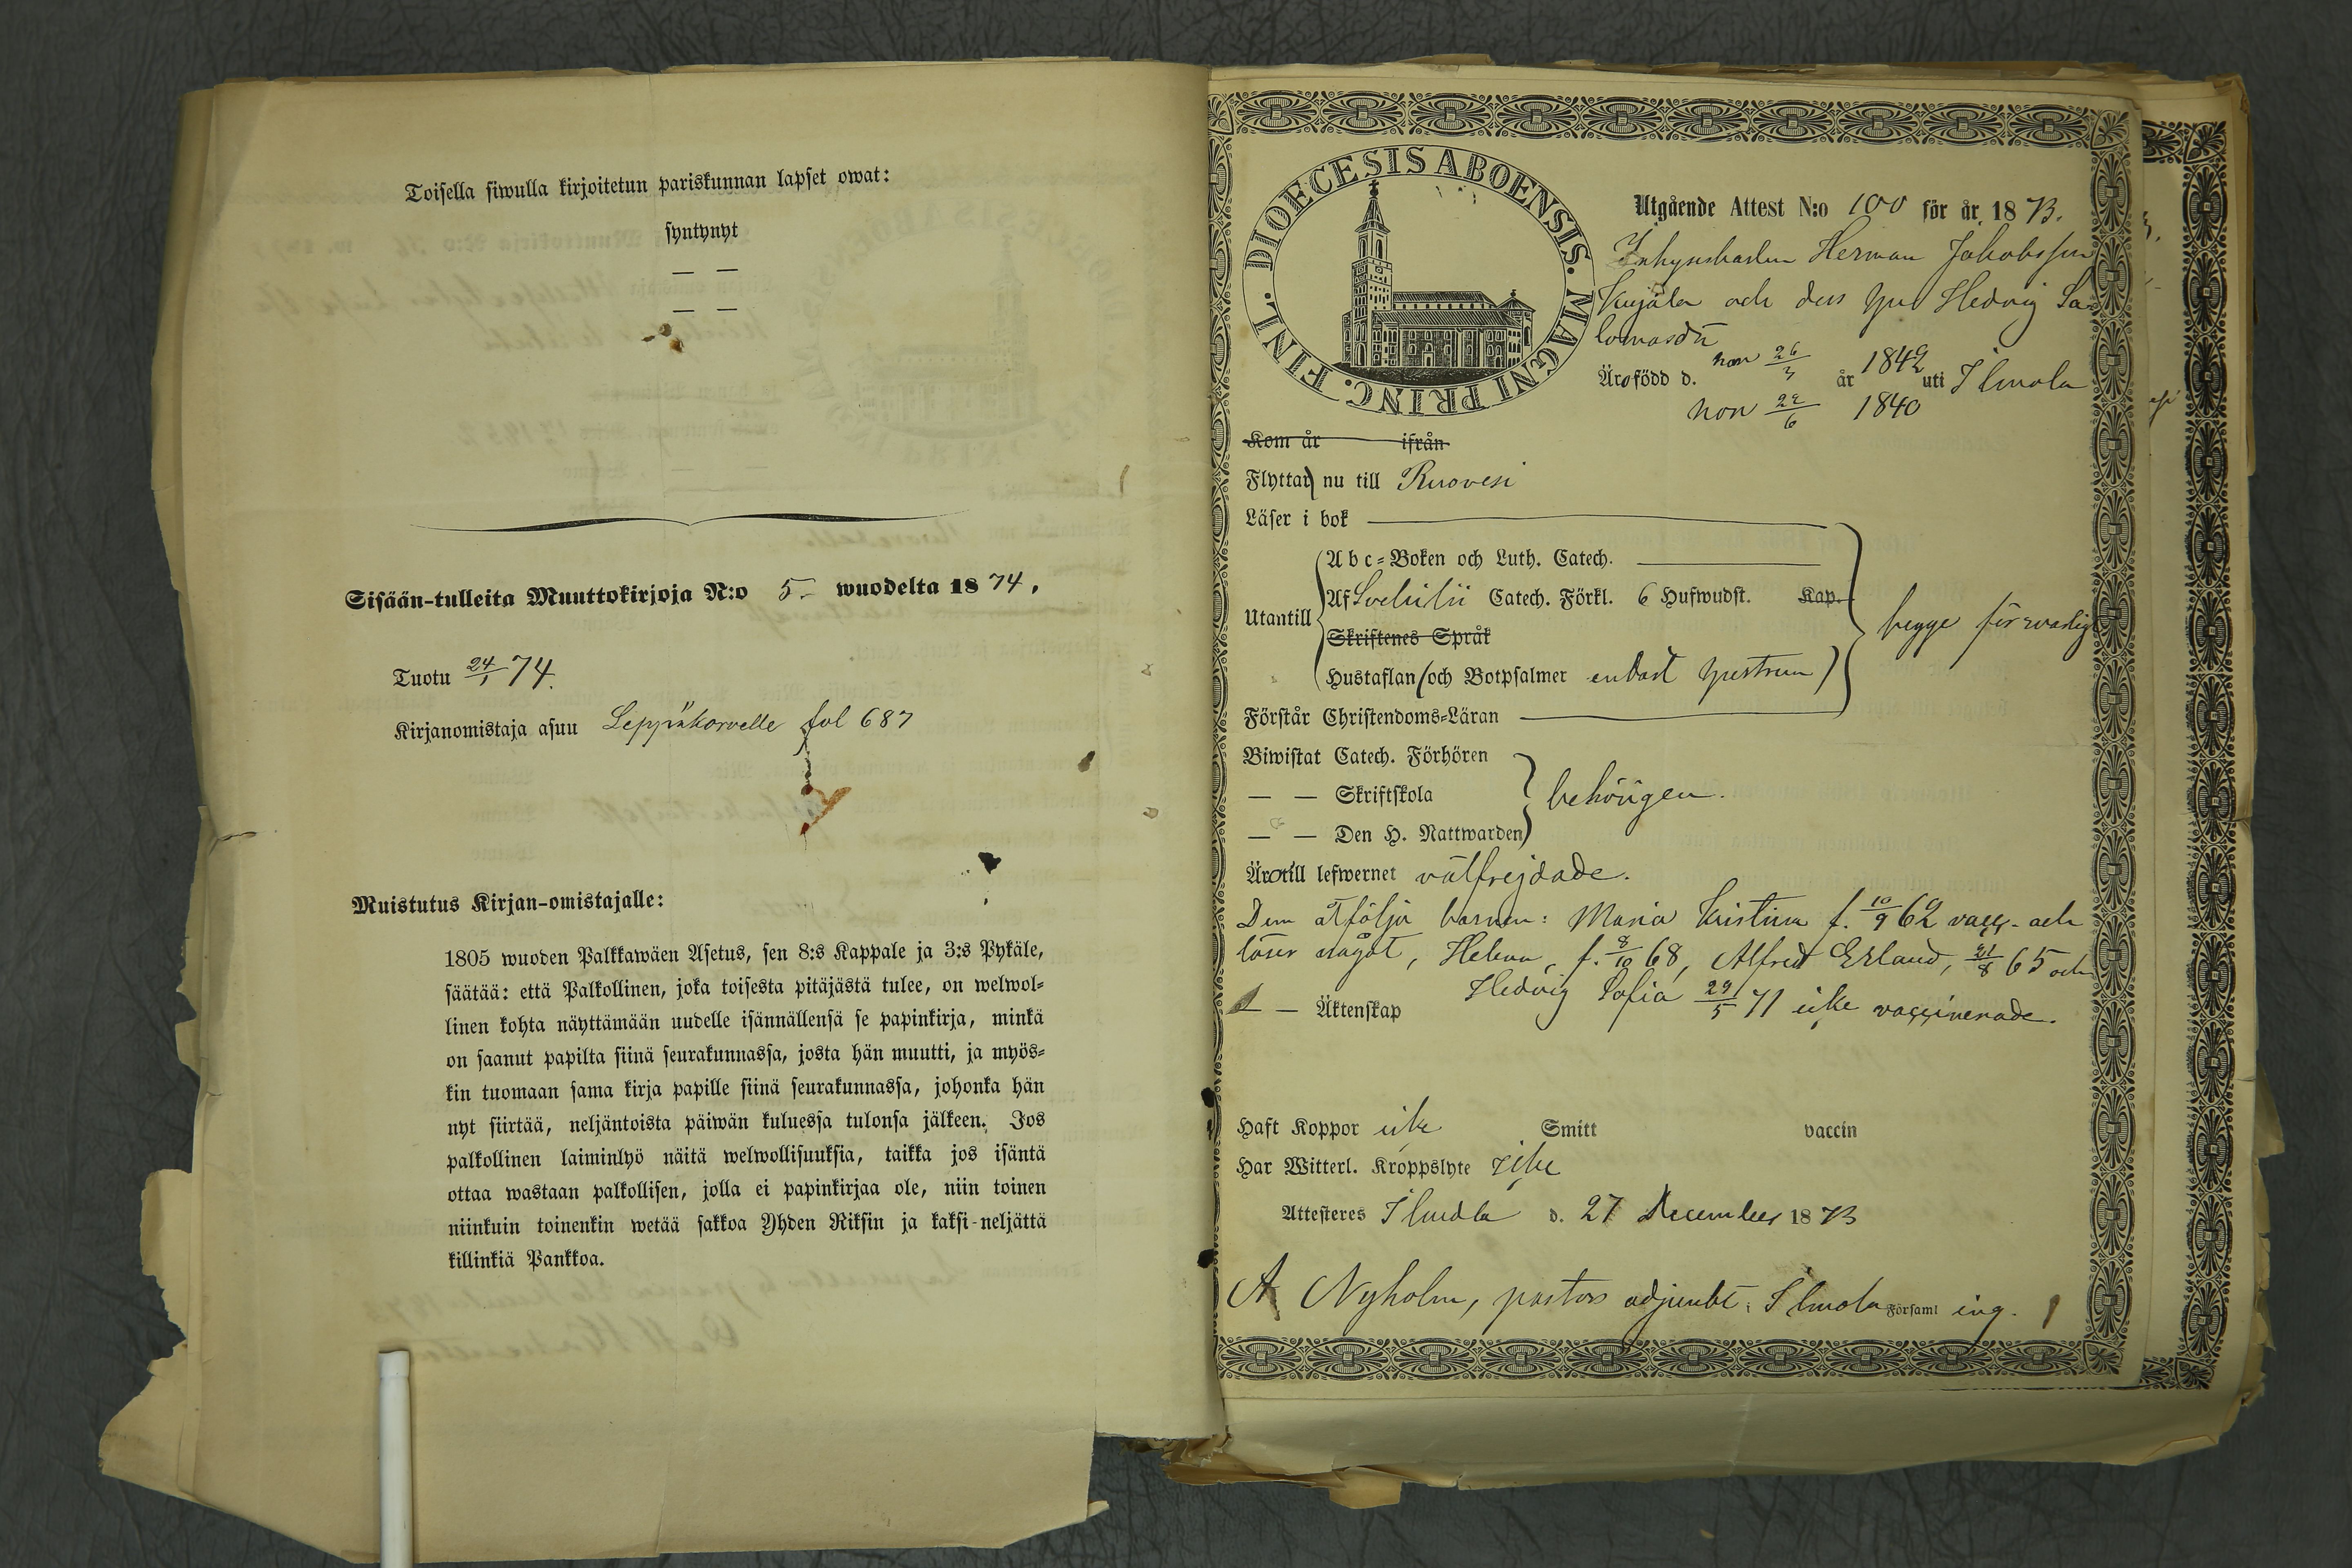 Toisella siwulla kirjoitetun pariskunnan lapset owat:
syntynyt
— —
— —
Sisään-tulleita Muuttokirjoja N:o 5 wuodelta 1874.
Tuotu 24/1 74.
Kirjanomistaja asuu Leppäkorvelle fol 687
Muistutus Kirjan-omistajalle:
1805 wuoden Palkkawäen Asetus, sen 8:s Kappale ja 3:s Pykäle,
säätää: että Palkollinen, joka toisesta pitäjästä tulee, on welwol-
linen kohta näyttämään uudelle isännällensä se papinkirja, minkä
on saanut papilta siinä seurakunnassa, josta hän muutti, ja myös-
kin tuomaan sama kirja papille siinä seurakunnassa, johonka hän
nyt siirtää, neljäntoista päiwän kuluessa tulonsa jälkeen. Jos
palkollinen laiminlyö näitä welwollisuuksia, taikka jos isäntä
ottaa wastaan palkollisen, jolla ei papinkirjaa ole, niin toinen
niinkuin toinenkin wetää sakkoa Yhden Riksin ja kaksi-neljättä
killinkiä Pankkoa.
DIOECESIS ABOENSIS. MAGNI PRINC. FINL.
Utgående Attest N:o 100 för år 1873.
Inhysekarlen Herman Jakobsson
Kujala och dess hu Hedvig Sa-
lomonsdr
Äro född d. han 26/3 år 1842 uti Ilmola
hon 22/6 1840
Kom år ifrån
Flyttar nu till Ruovesi
Läser i bok
Abc-Boken och Luth. Catech.
Utantill Af Svebilii Catech. Förkl. 6 Hufwudst. Kap. begge försvarligt
Skriftenes Språk
Hustaflan (och Botpsalmer endast hustrun)
Förstår Christendoms-Läran
Biwistat Catech. Förhören
— — Skriftskola behörigen.
— — Den H. Nattwarden
Äro till lefwernet välfrejdade.
Dem åtfölja barnen: Maria Kristina f. 10/9 62 vacc. och
läser något, Helena f. 8/10 68, Alfred Erland, 21/8 65 och
Hedvig Sofia 29/5 71 icke vaccinerade.
— Äktenskap
Haft Koppor icke Smitt vaccin
Har Witterl. Kroppslyte icke
Attesteres Ilmola d. 27 December 1873
A Nyholm, pastors adjunkt i Ilmola Församl ing.